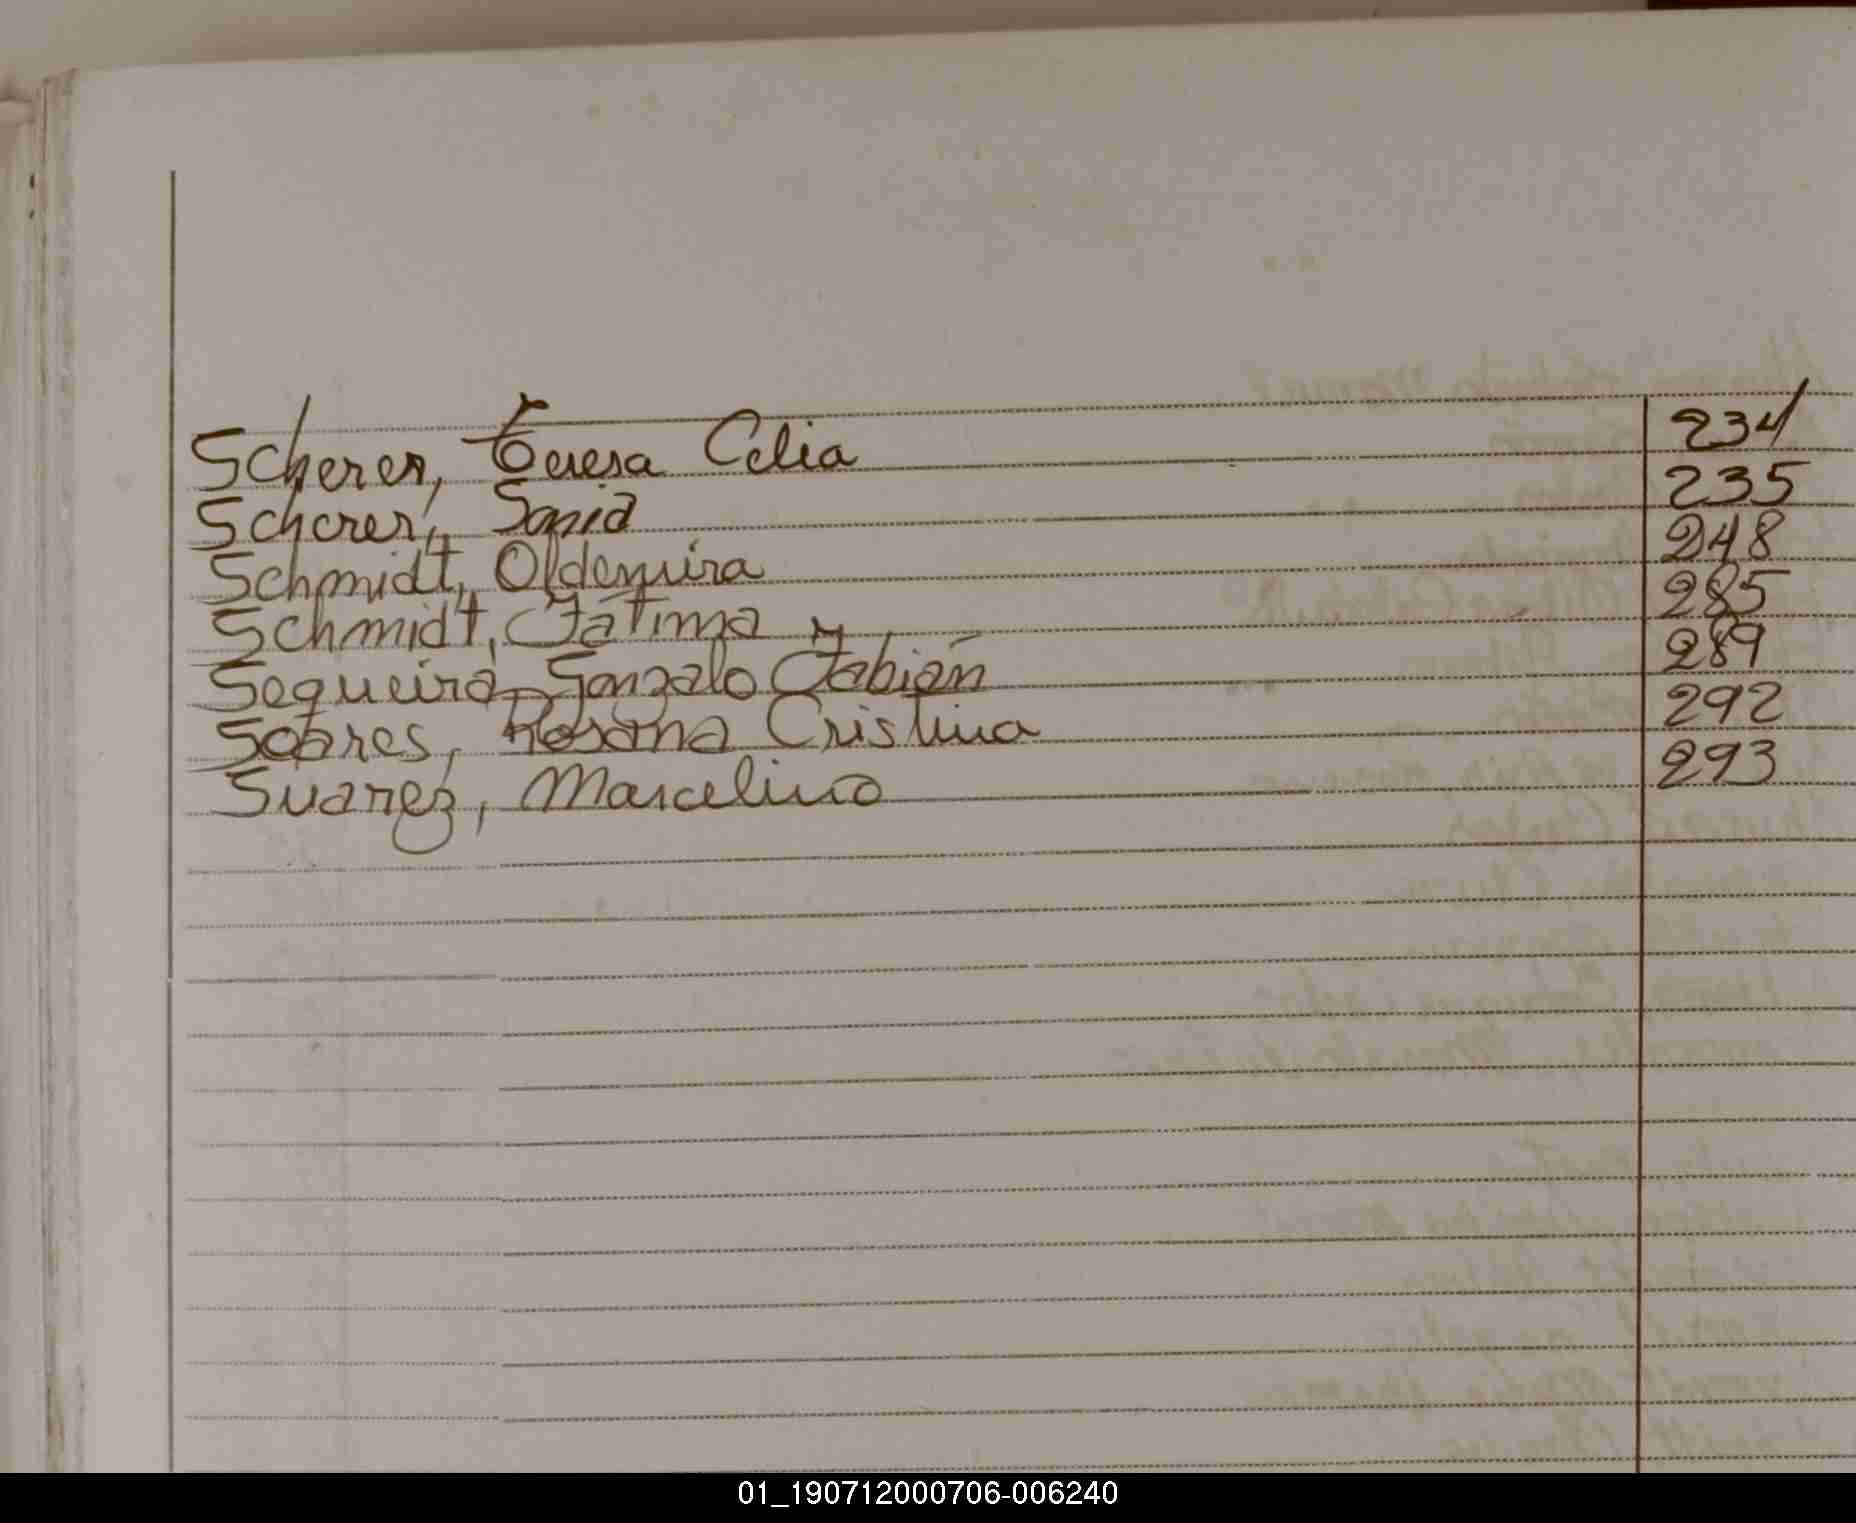 Scherer, Teresa Celia 234
Scherer, Sonia 235
Schmidt, Oldemira 248
Schmidt, Fatima 285
Sequeira, Gonzalo Fabián 289
Soares, Rosana Cristina 292
Suarez, Marcelino 293
01_190712000706-006240